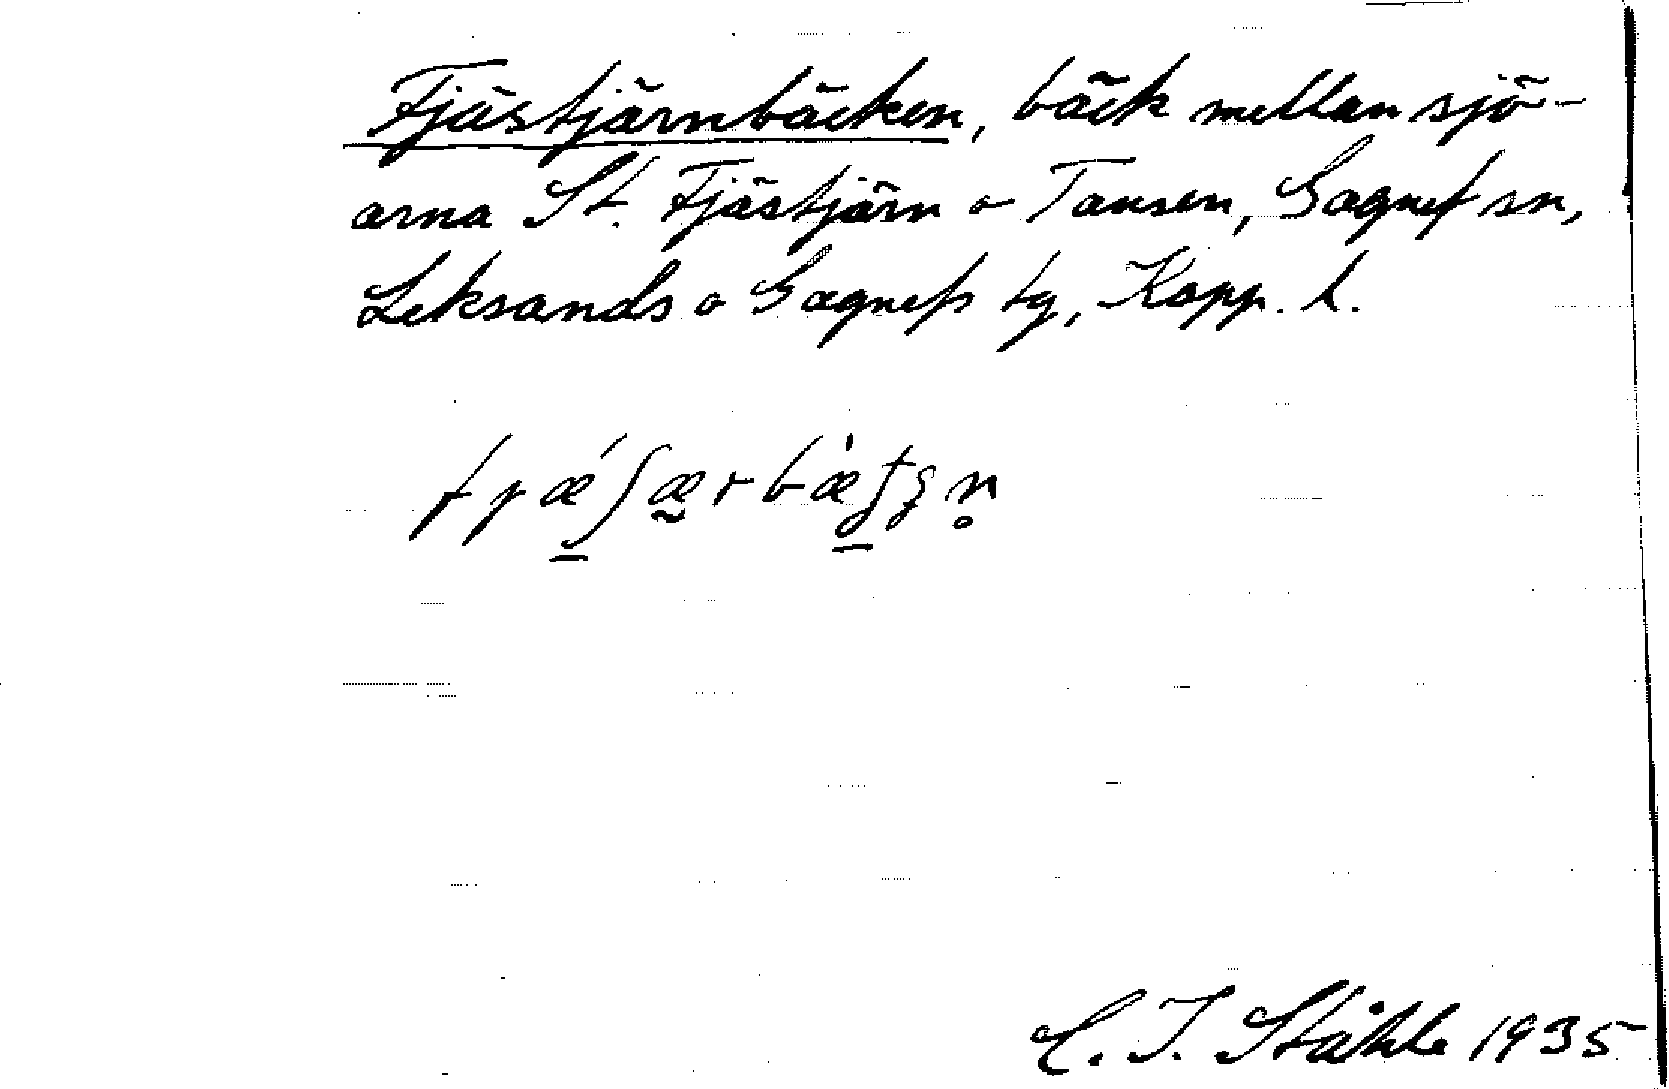 Fjästjärnbäcken, bäck mellan sjö-
arna St. Fjästjärn o Tansen, Gagnef sn,
Leksands o Gagnefs tg, Kopp. l.
C. I. Ståhle 1935